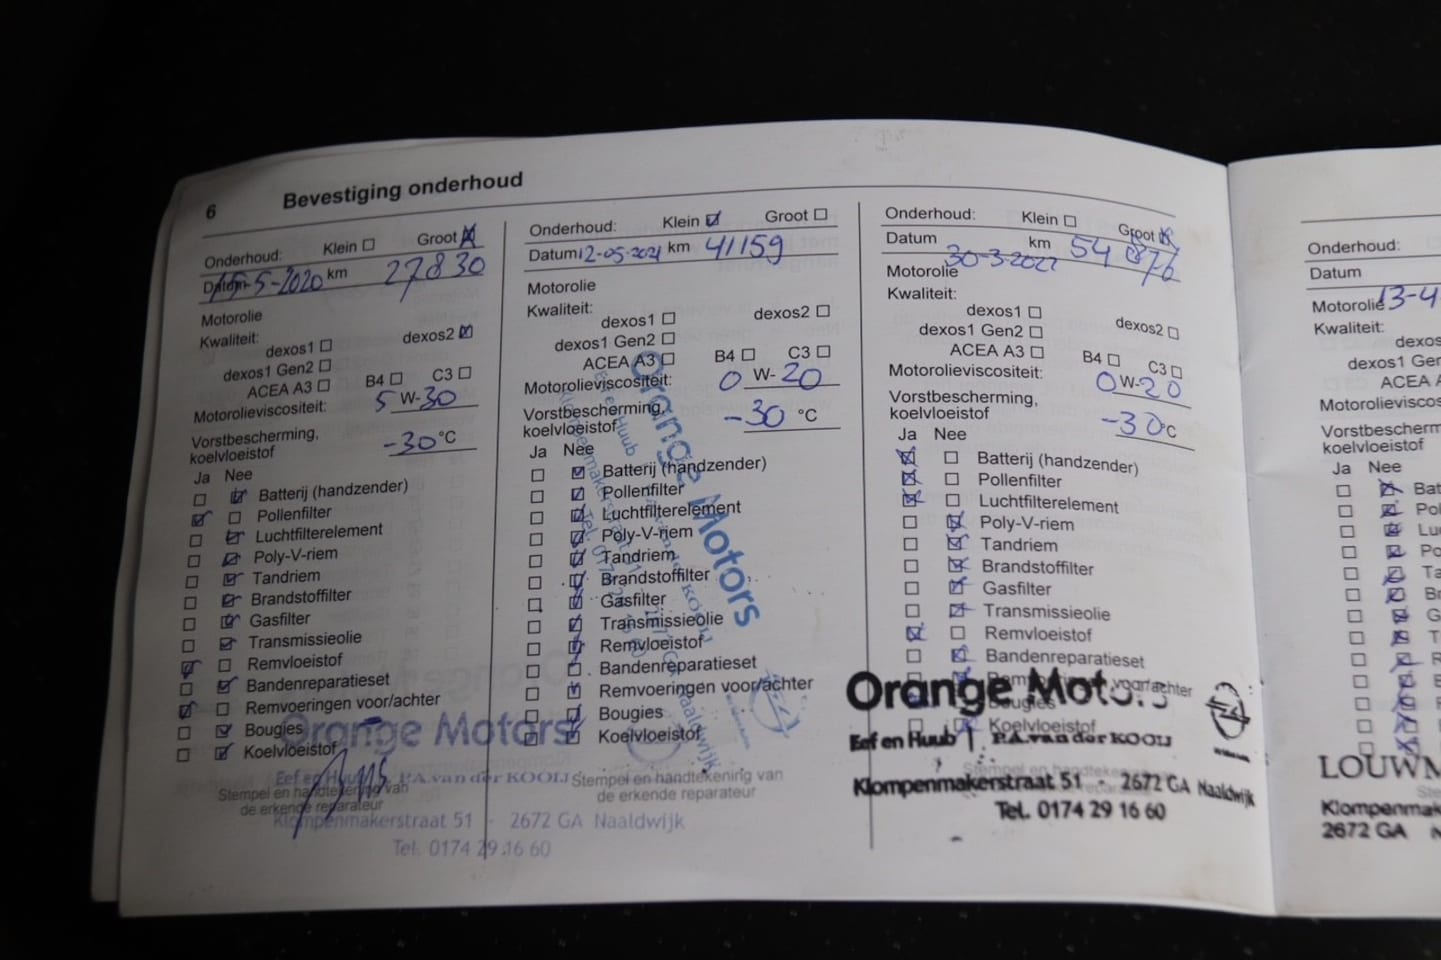 6
Bevestiging onderhoud
Onderhoud: Klein Groot
Datum 15-5-2020 km 27830
Motorolie
Kwaliteit:
dexos1 dexos2
dexos1 Gen2
ACEA A3 B4 C3
Motorolieviscositeit: 5 W-30
Vorstbescherming,
koelvloeistof -30 °C
Ja Nee
Batterij (handzender)
Pollenfilter
Luchtfilterelement
Poly-V-riem
Tandriem
Brandstoffilter
Gasfilter
Transmissieolie
Remvloeistof
Bandenreparatieset
Remvoeringen voor/achter
Bougies
Koelvloeistof
Stempel en handtekening van
de erkende reparateur
Orange Motors
Eef en Huub P.A. van der KOOIJ
Klompenmakerstraat 51 - 2672 GA Naaldwijk
Tel. 0174 29 16 60
Onderhoud: Klein Groot
Datum 12-05-2021 km 41159
Motorolie
Kwaliteit:
dexos1 dexos2
dexos1 Gen2
ACEA A3 B4 C3
Motorolieviscositeit: 0 W-20
Vorstbescherming,
koelvloeistof -30 °C
Ja Nee
Batterij (handzender)
Pollenfilter
Luchtfilterelement
Poly-V-riem
Tandriem
Brandstoffilter
Gasfilter
Transmissieolie
Remvloeistof
Bandenreparatieset
Remvoeringen voor/achter
Bougies
Koelvloeistof
Stempel en handtekening van
de erkende reparateur
Orange Motors
Onderhoud: Klein Groot
Datum 30-3-2022 km 54876
Motorolie
Kwaliteit:
dexos1 dexos2
dexos1 Gen2
ACEA A3 B4 C3
Motorolieviscositeit: 0 W-20
Vorstbescherming,
koelvloeistof -30 °C
Ja Nee
Batterij (handzender)
Pollenfilter
Luchtfilterelement
Poly-V-riem
Tandriem
Brandstoffilter
Gasfilter
Transmissieolie
Remvloeistof
Bandenreparatieset
Remvoeringen voor/achter
Bougies
Koelvloeistof
Orange Motors
Eef en Huub P.A. van der KOOIJ
Klompenmakerstraat 51 - 2672 GA Naaldwijk
Tel. 0174 29 16 60
Onderhoud:
Datum
Motorolie 13-4
Kwaliteit:
dexos
dexos1 Gen
ACEA A
Motorolievisco
Vorstbescherm
koelvloeistof
Ja Nee
Bat
Pol
Lu
Po
Ta
Br
G
T
R
LOUWM
Klompenmak
2672 GA